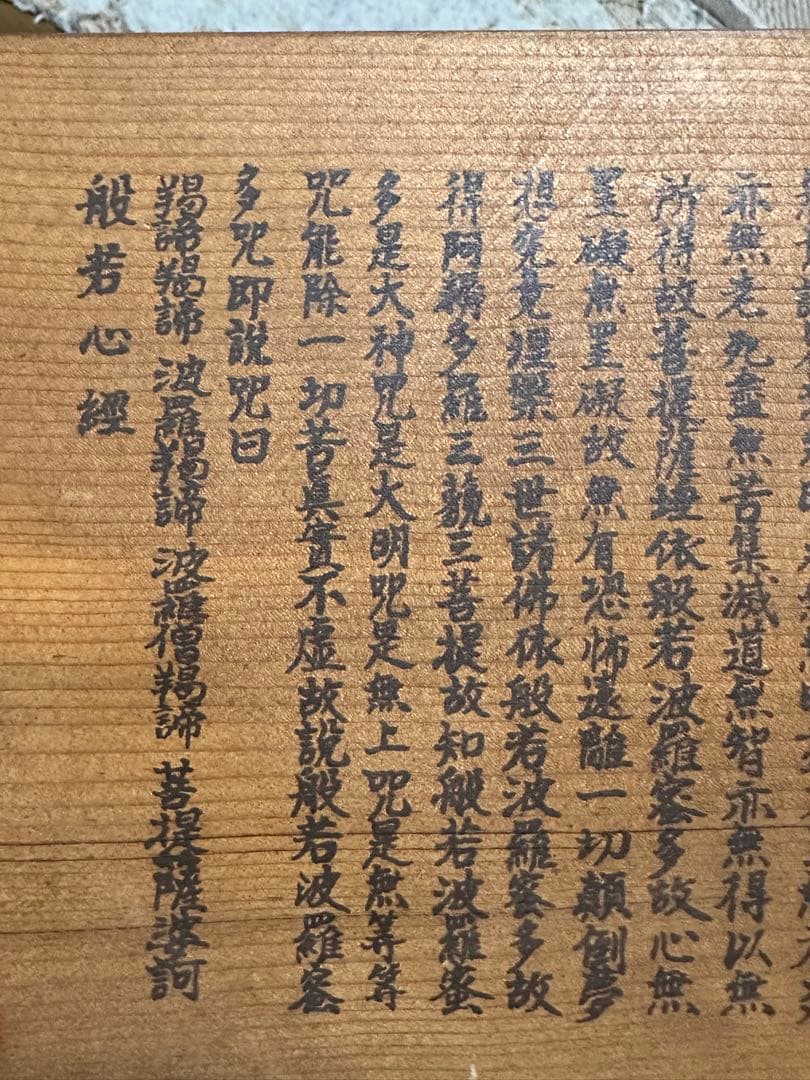 亦無老死盡無苦集滅道無智亦無得以無
所得故菩提薩埵依般若波羅蜜多故心無
罣礙無罣礙故無有恐怖遠離一切顛倒夢
想究竟涅槃三世諸佛依般若波羅蜜多故
得阿耨多羅三藐三菩提故知般若波羅蜜
多是大神咒是大明咒是無上咒是無等等
咒能除一切苦眞實不虛故說般若波羅蜜
多咒即說咒曰
羯諦羯諦 波羅羯諦 波羅僧羯諦 菩提薩婆訶
般若心經